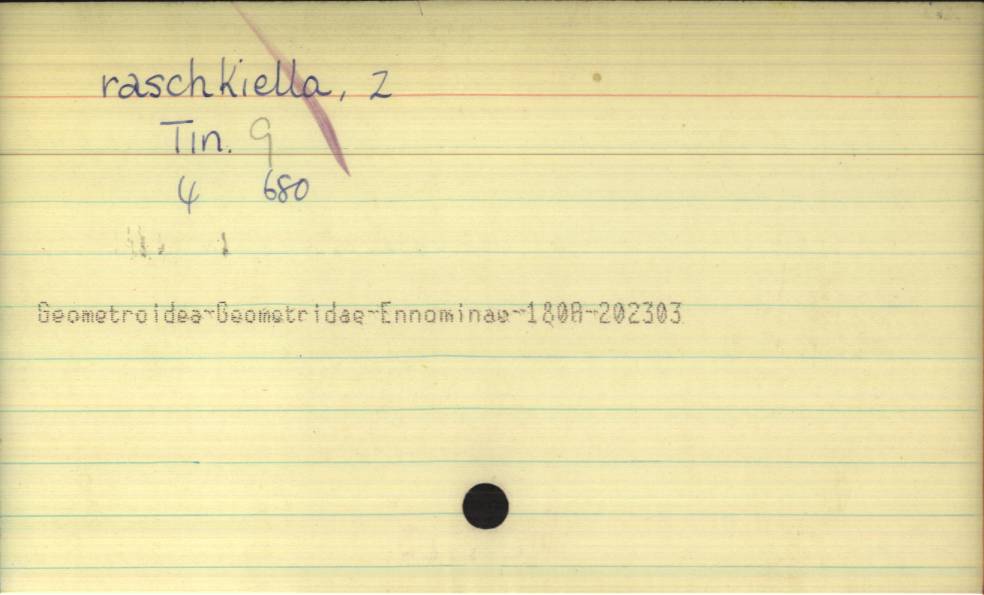 raschkiella, Z
Tin. 9
4 680
Geometroidea~Geometridae~Ennominae~180A~202303